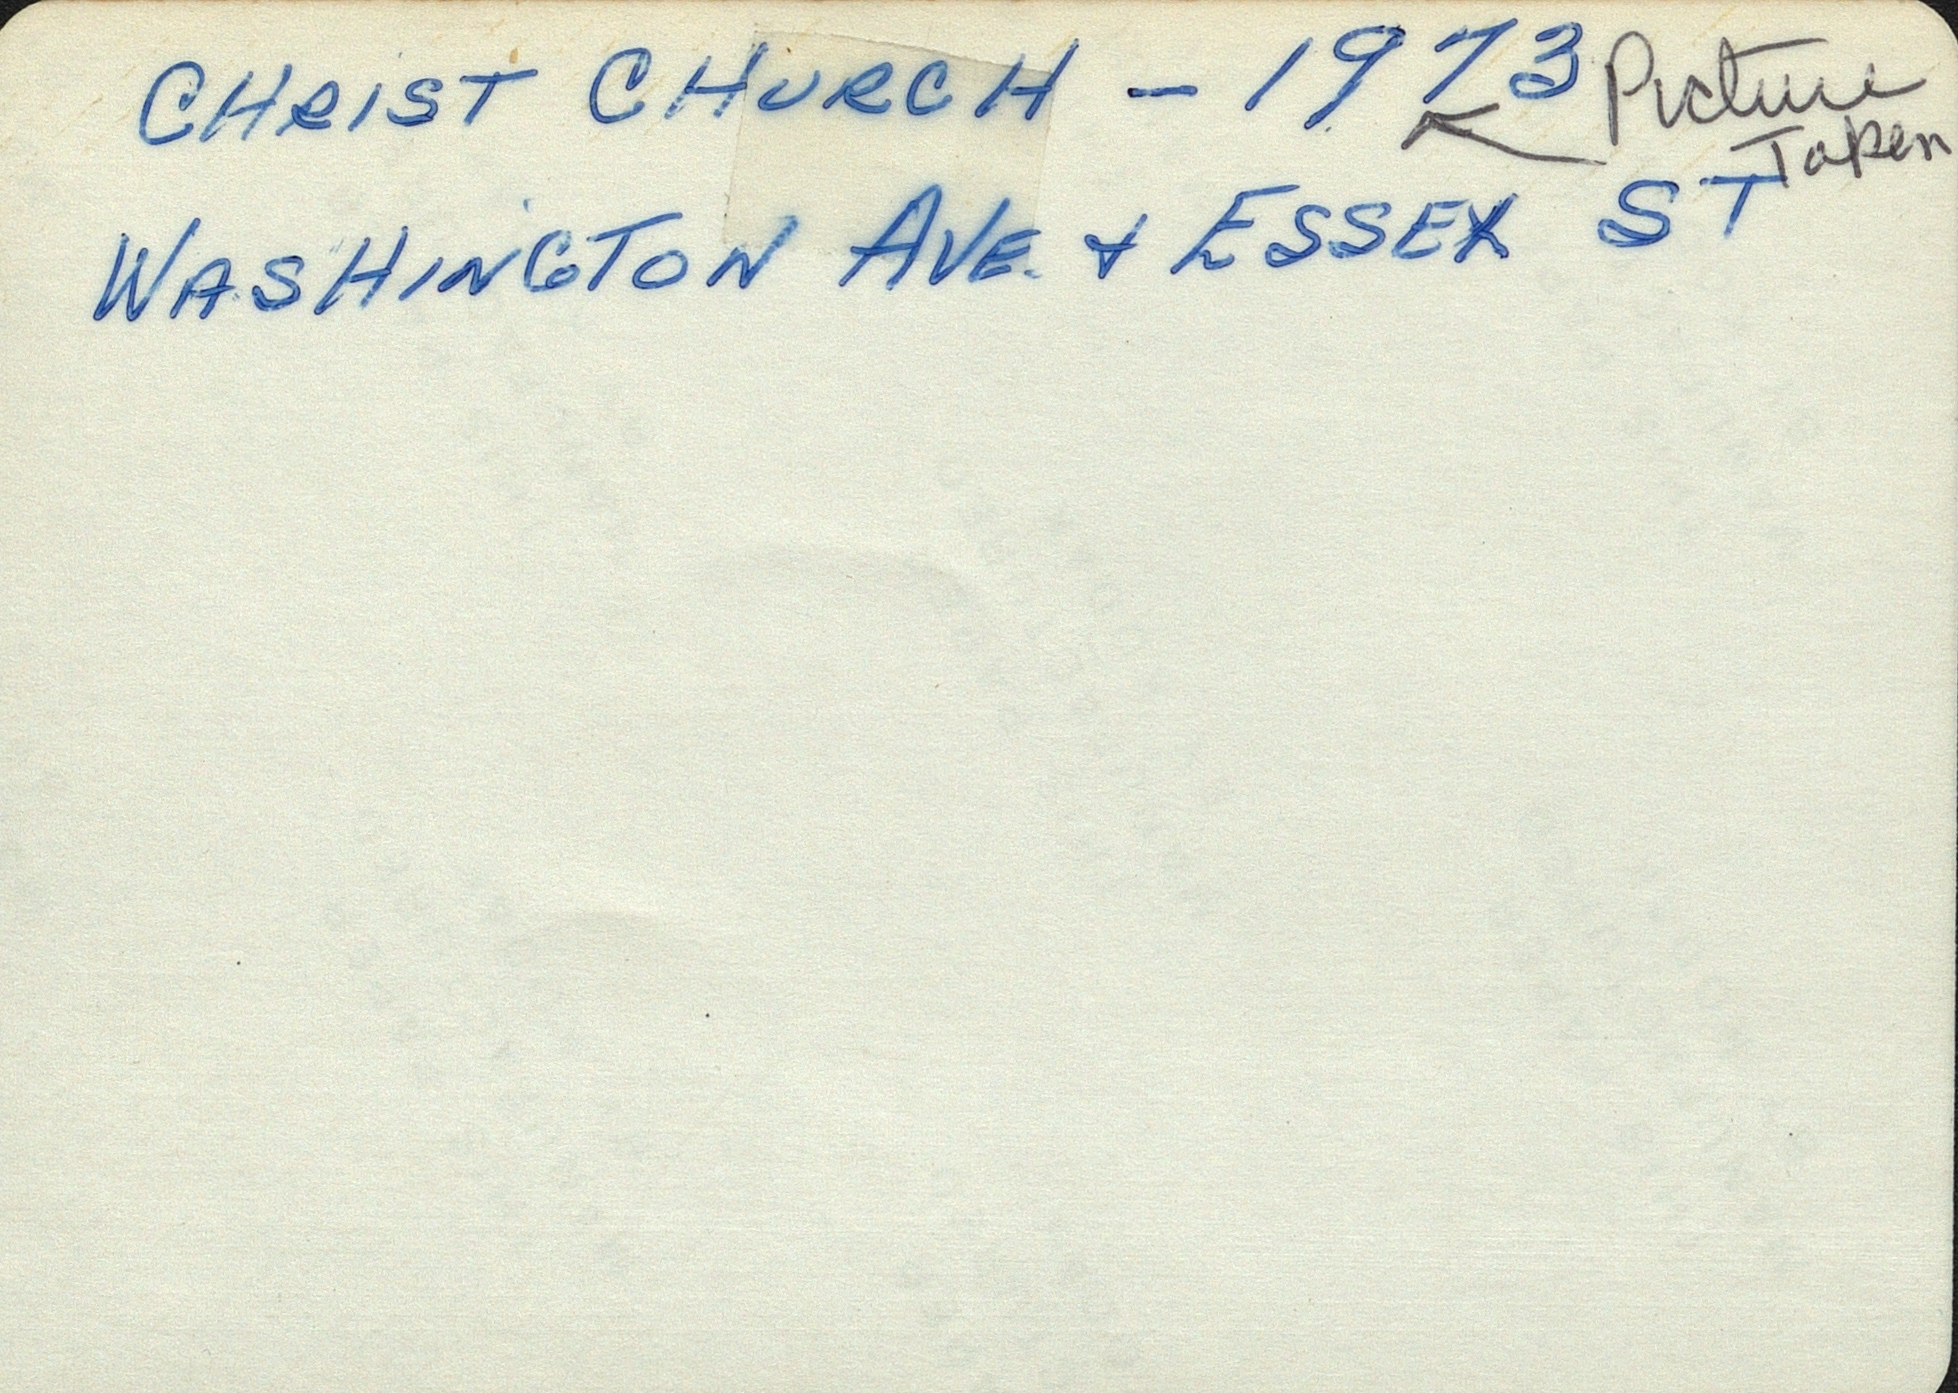 CHRIST CHURCH - 1973 Picture
Taken
WASHINGTON AVE. & ESSEX ST